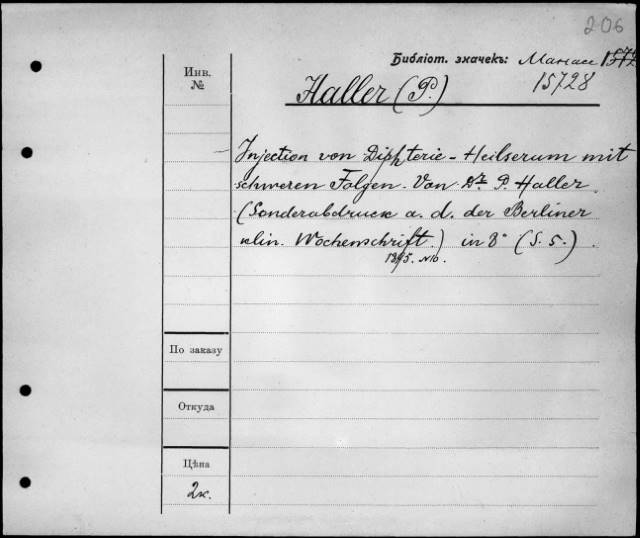 206
Библіот. значекъ: Манасс 1572
15728
Инв.
№
Haller (P.)
Injection von Diphterie-Heilserum mit
schweren Folgen. Von Dr P. Haller.
(Sonderabdruck a. d. der Berliner
klin. Wochenschrift.) in 8° (S. 5.).
1895. №10.
По заказу
Откуда
Цѣна
2к.